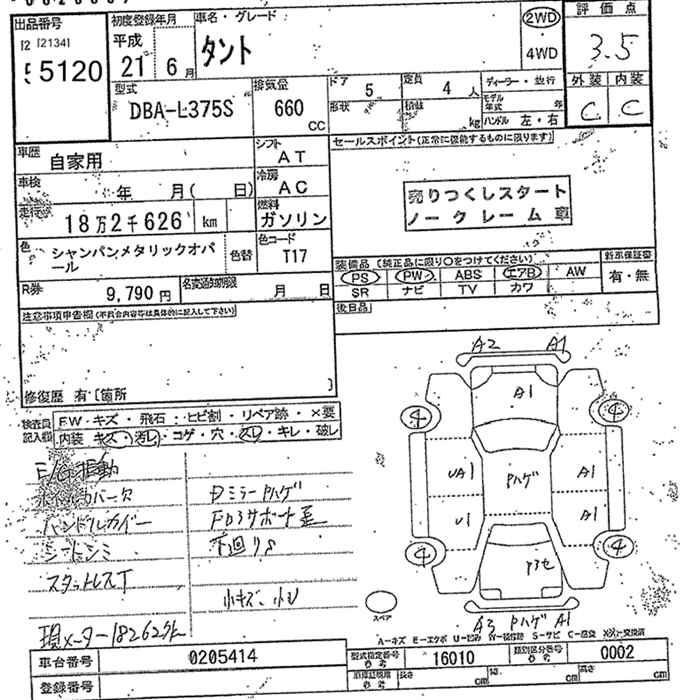 出品番号
[2134]
5120
初度登録年月
平成
21 6月
車名・グレード
タント
2WD
4WD
評価点
3.5
外装 内装
C C
型式
DBA-L375S
排気量
660
CC
ドア 5
形状
定員 4 人
積載 kg
ディーラー・並行
モデル年式 年
ハンドル 左・右
車歴
自家用
車検 年 月( 日)
走行 18万2千626 km
色
シャンパンメタリックオパール
色替
R券
9,790 円
シフト
AT
冷房
AC
燃料
ガソリン
色コード
T17
名変期限
月 日
セールスポイント(正常に機能するものに限ります)
売りつくしスタート
ノークレーム車
装備品 (純正品に限り○をつけてください)
PS PW ABS エアB AW
SR ナビ TV カワ
新車保証書
有・無
後日品
注意事項申告欄(不具合内容等は具体的に記入して下さい)
修復歴 有 [箇所 ]
検査員記入欄
FW キズ・飛石・ヒビ割・リペア跡・×要
内装 キズ・汚レ・コゲ・穴・スレ・キレ・破レ
E/G振動
ホイルカバー欠
ハンドルカバー
シートシミ
スタットレスT
現メーター182626
DミラーPハゲ
下廻りS
小キズ、小U
A2 A1
A1
4 4
UA1 Pハゲ A1
U1 A1
4 4
A3 Pハゲ A1
スペア
A-キズ E-エクボ U-凹み W-補修跡 S-サビ C-腐食 X,XX-交換済
車台番号 0205414
登録番号
型式指定番号 参考 16010
類別区分番号 参考 0002
長さ cm 幅 cm 高さ cm